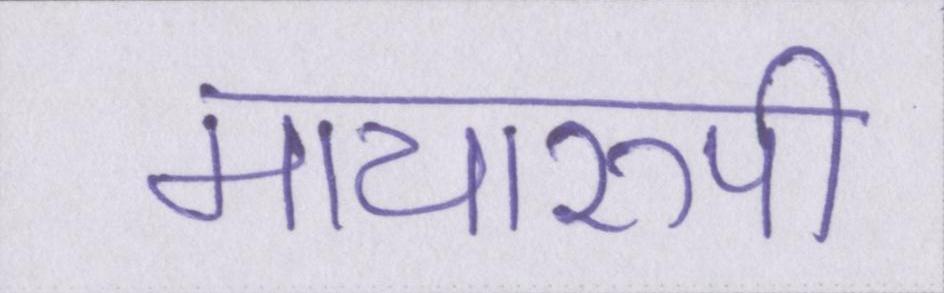 मायारुपी